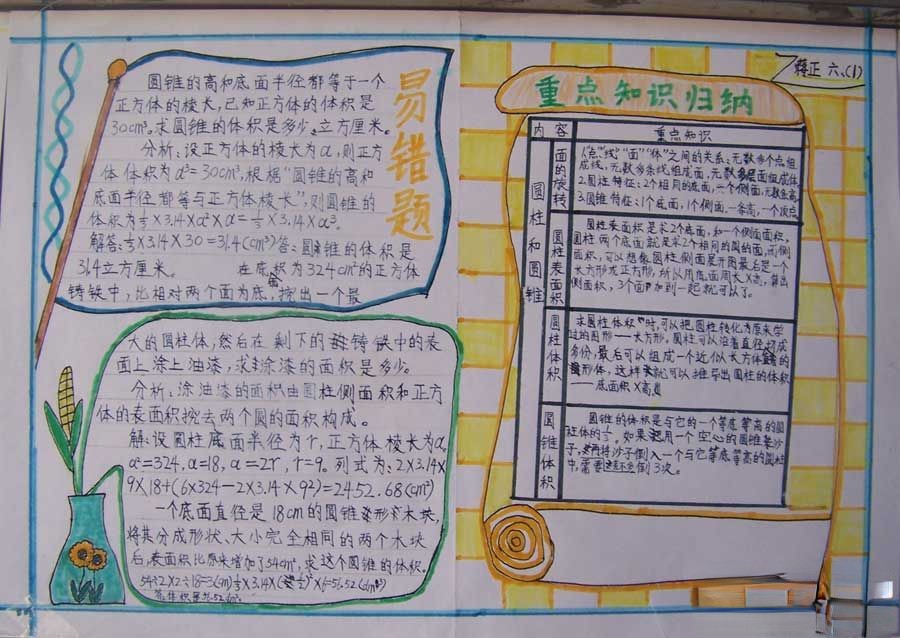 易错题
圆锥的高和底面半径都等于一个
正方体的棱长,已知正方体的体积是
30cm³。求圆锥的体积是多少立方厘米。
分析:设正方体的棱长为a,则正方
体体积为a³=30cm³,根据“圆锥的高和
底面半径都等与正方体棱长”,则圆锥的
体积为⅓×3.14×a²×a=⅓×3.14×a³。
解答:⅓×3.14×30=31.4(cm³)答:圆锥的体积是
31.4立方厘米。 在底面积为324cm²的正方体
铸铁中,比相对两个面为底,挖出一个最
大的圆柱体,然后在剩下的铸铁中的表
面上涂上油漆,求涂漆的面积是多少。
分析:涂油漆的面积由圆柱侧面积和正方
体的表面积挖去两个圆的面积构成。
解:设圆柱底面半径为r,正方体棱长为a。
a²=324,a=18,a=2r,r=9。列式为:2×3.14×
9×18+(6×324-2×3.14×9²)=2452.68(cm²)
一个底面直径是18cm的圆锥形木块,
将其分成形状、大小完全相同的两个木块
后,表面积比原来增加了54cm²,求这个圆锥的体积。
54÷2×2÷18=3(cm)
蒋正 六、(1)
重点知识归纳
内容 重点知识
圆柱和圆锥
面的旋转
1.“点”“线”“面”“体”之间的关系:无数多个点组
成线,无数多条线组成面,无数多层面组成体
2.圆柱特征:2个相同的底面,一个侧面,无数条高
3.圆锥特征:1个底面,1个侧面,一条高,一个顶点
圆柱表面积
圆柱表面积是求2个底面,和一个侧面面积,
圆柱两个底面就是求2个相同的圆的面,而侧
面积,可以想像圆柱侧面展开图最后是一个
长方形或正方形,所以用底面周长×高,算出
侧面积,3个面加到一起就可以了。
圆柱体积
求圆柱体积时,可以把圆柱转化为原来学
过的图形——长方形,圆柱可以沿着直径切成
多份,最后可以组成一个近似长方体的
形体,这样就可以推导出圆柱的体积
——底面积×高
圆锥体积
圆锥的体积是与它的一个等底等高的圆
柱体的⅓。如果用一个空心的圆锥装沙
子,再将沙子倒入一个与它等底等高的圆柱
中,需要倒3次。